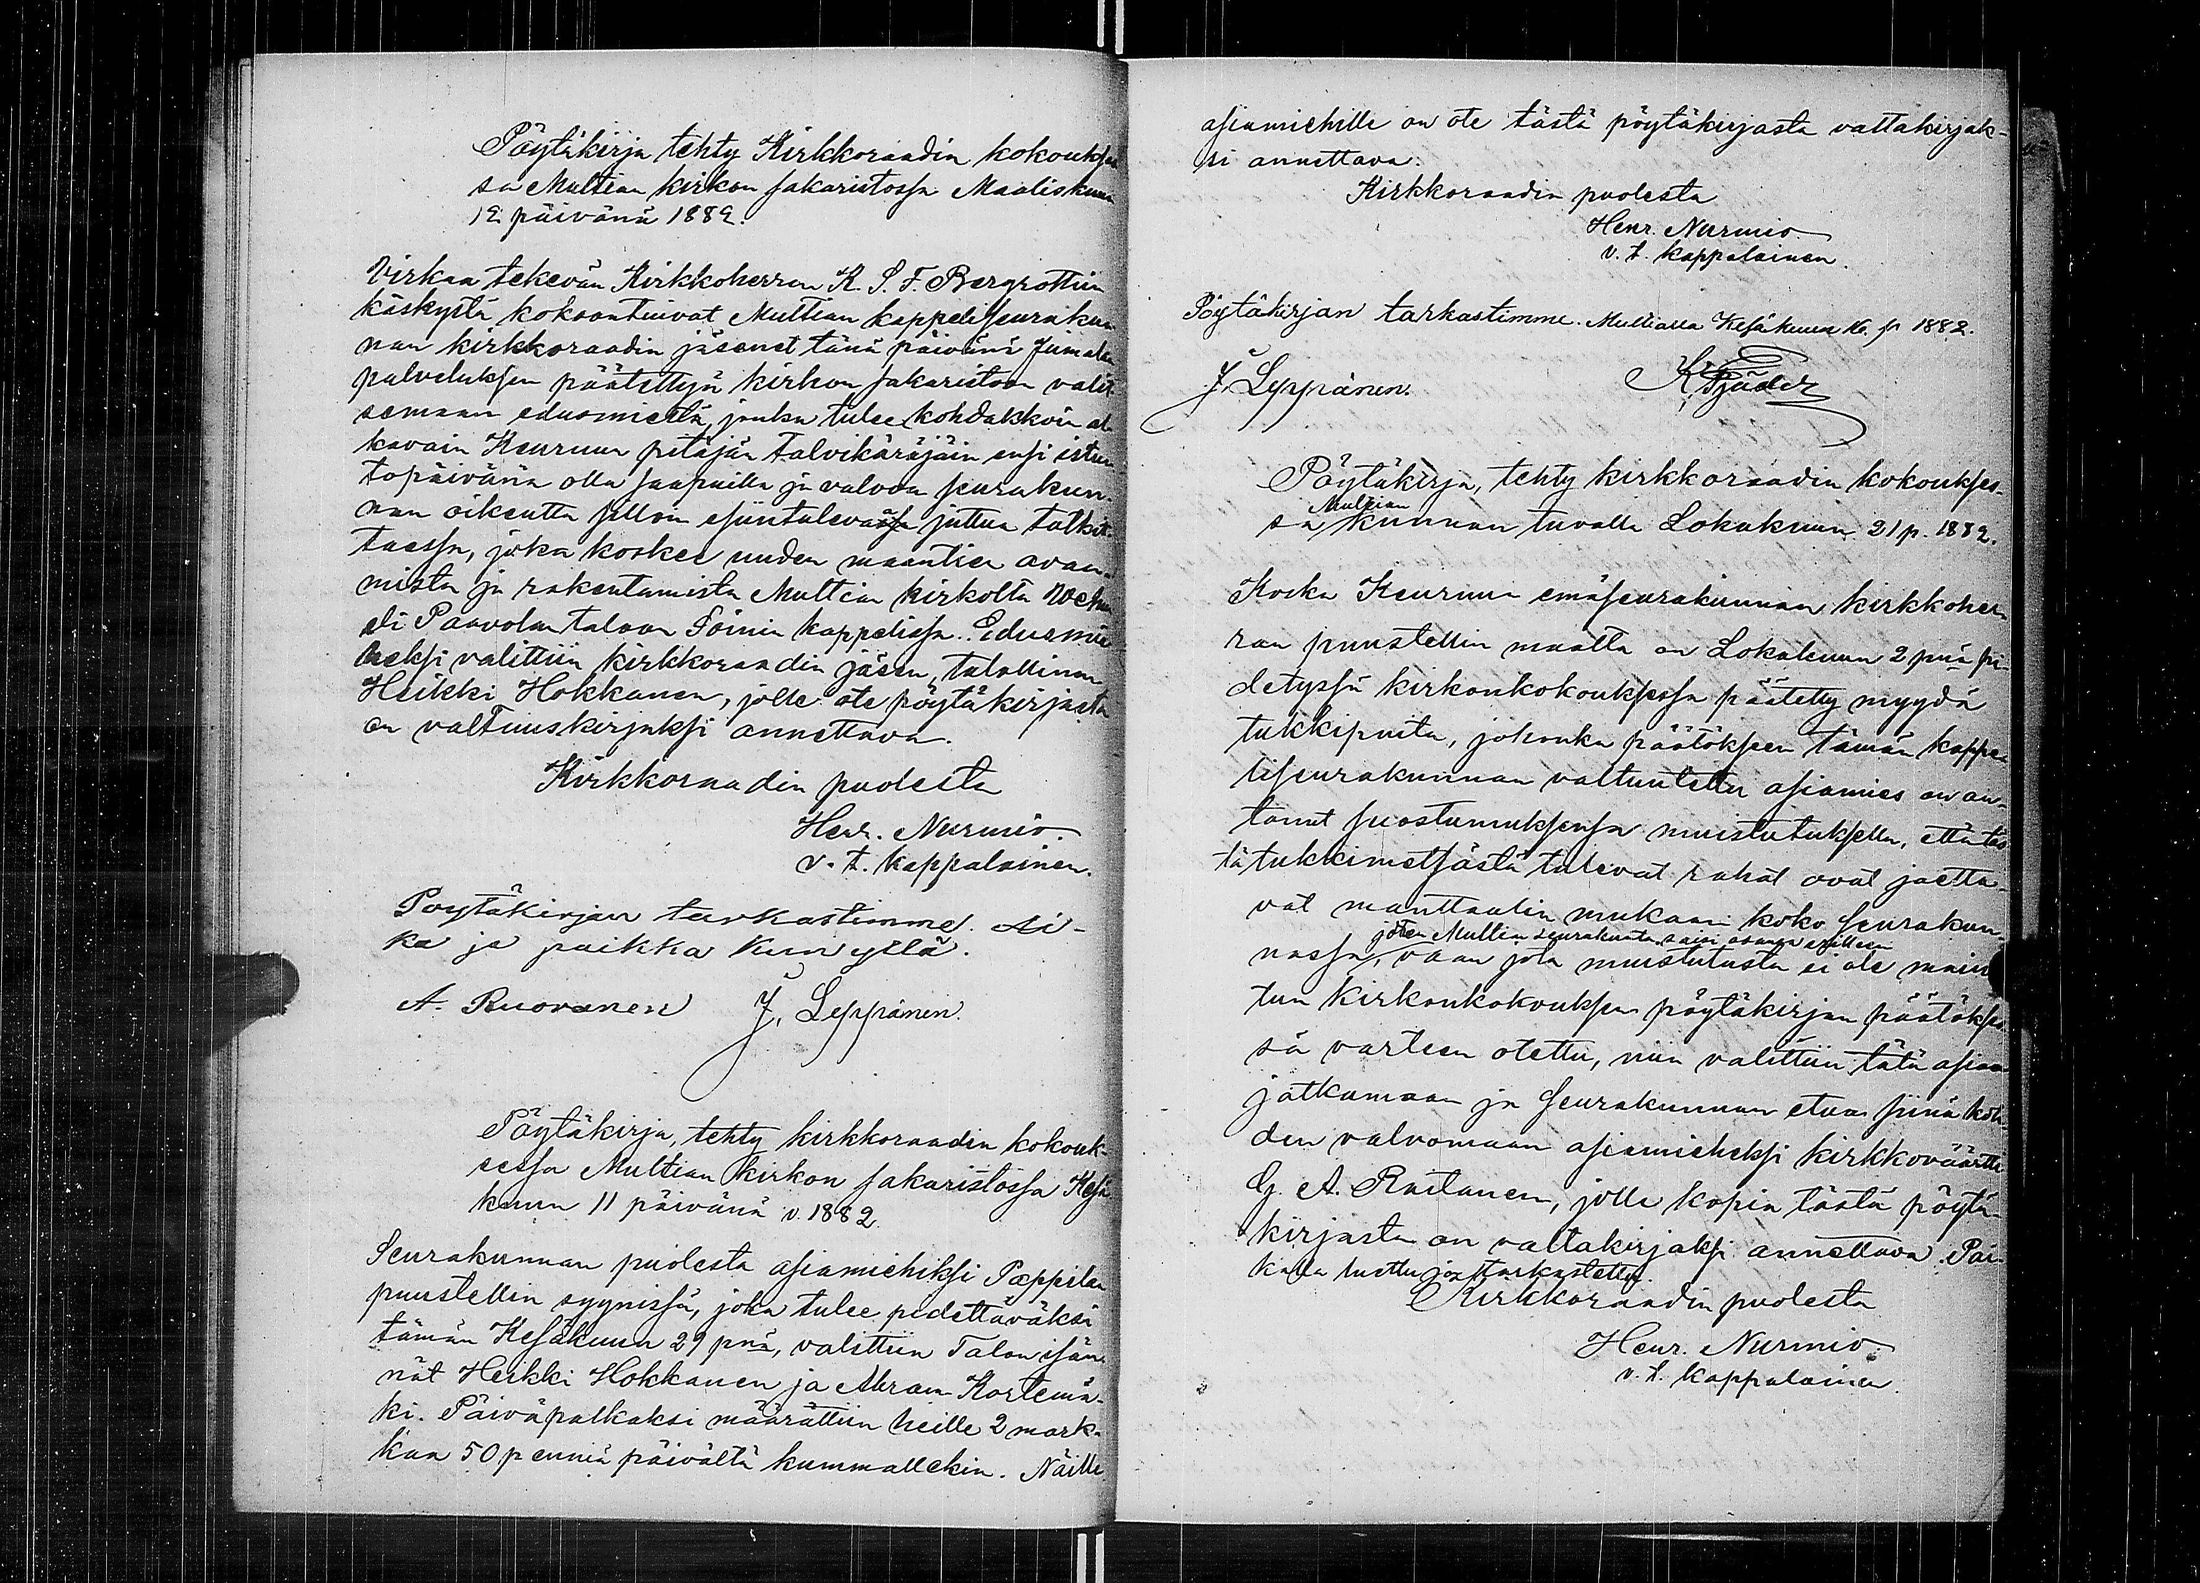 Pöytäkirja tehty Kirkkoraadin kokoukses-
sa Multian kirkon sakaristossa Maaliskuun
12 päivänä 1882.
Virkaa tekevän Kirkkoherran K. S. F. Bergrottin
käskystä kokoontuivat Multian kappeliseurakun-
nan kirkkoraadin jäsenet tänä päivänä Jumalan
palveluksen päätettyä kirkon sakaristoon valit-
semaan edusmiestä, jonka tulee kohdakkoin al-
kavain Keuruun pitäjän talvikäräjäin ensi istun-
topäivänä olla saapuilla ja valvoa seurakun-
nan oikeutta silloin esiintulevassa juttua tutkit-
taessa, joka koskee uuden maantien avaa-
mista ja rakentamista Multian kirkolta
Paavolan taloon Soinin kappelissa. Edusmie-
heksi valittiin kirkkoraadin jäsen, talollinen
Heikki Hokkanen, jolle ote pöytäkirjasta
on valtuuskirjaksi annettava.
Kirkkoraadin puolesta
Henr. Nurmio.
v. t. kappalainen.
Poytäkirjan tarkastimme. Ai-
ka ja paikka kun yllä.
A. Ruoranen J. Leppänen.
Pöytäkirja, tehty kirkkoraadin kokouk-
sessa Multian kirkon sakaristossa Kesä
kuun 11 päivänä v. 1882
Seurakunnan puolesta asiamiehiksi Pappilan
puustellin syynissä, joka tulee pidettäväksi
tämän Kesäkuun 29 pnä, valittiin Talon isän-
nät Heikki Hokkanen ja Abram Kortemä-
ki. Päiväpalkaksi määrättiin heille 2 mark-
kaa 50 penniä päivältä kummallekin. Näille
asiamiehille on ote tästä pöytäkirjasta valtakirjak-
si annettava.
Kirkkoraadin puolesta
Henr. Nurmio
v. t. kappalainen.
Pöytäkirjan tarkastimme. Multialla Kesäkuun 16. p 1882.
J. Leppänen. K. Tjäder
Pöytäkirja, tehty kirkkoraadin kokoukses-
sa Multian kunnan tuvalla Lokakuun 21 p. 1882.
Koska Keuruun emäseurakunnan kirkkoher-
ran puustellin maalta on Lokakuun 2 pnä pi-
detyssä kirkonkokouksessa päätetty myydä
tukkipuita, johonka päätökseen tämän kappe-
liseurakunnan valtuutettu asiamies on an-
tanut suostumuksensa muistutuksella, että täs-
tä tukkimetsästä tulevat rahat ovat jaetta-
vat manttaalin mukaan koko seurakun-
joten Multian seurakunta saisi osansa erilleen
nassa, vaan jota muistutusta ei ole maini-
tun kirkonkokouksen pöytäkirjan päätökses-
sä varteen otettu, niin valittiin tätä asiaa
jatkamaan ja seurakunnan etua siinä koh-
den valvomaan asiamieheksi kirkkoväärtti
G. A. Rastanen, jolle kopia tästä pöytä-
kirjasta on valtakirjaksi annettava. Pai-
kalla luettu ja tarkastettu.
Kirkkoraadin puolesta
Henr. Nurmio.
v. t. kappalainen.